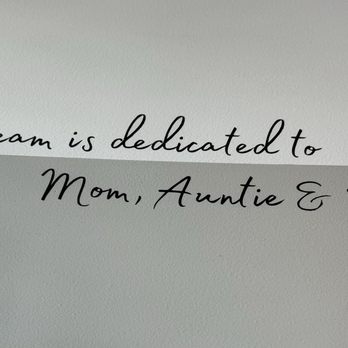 is dedicated to
Mom, Auntie &